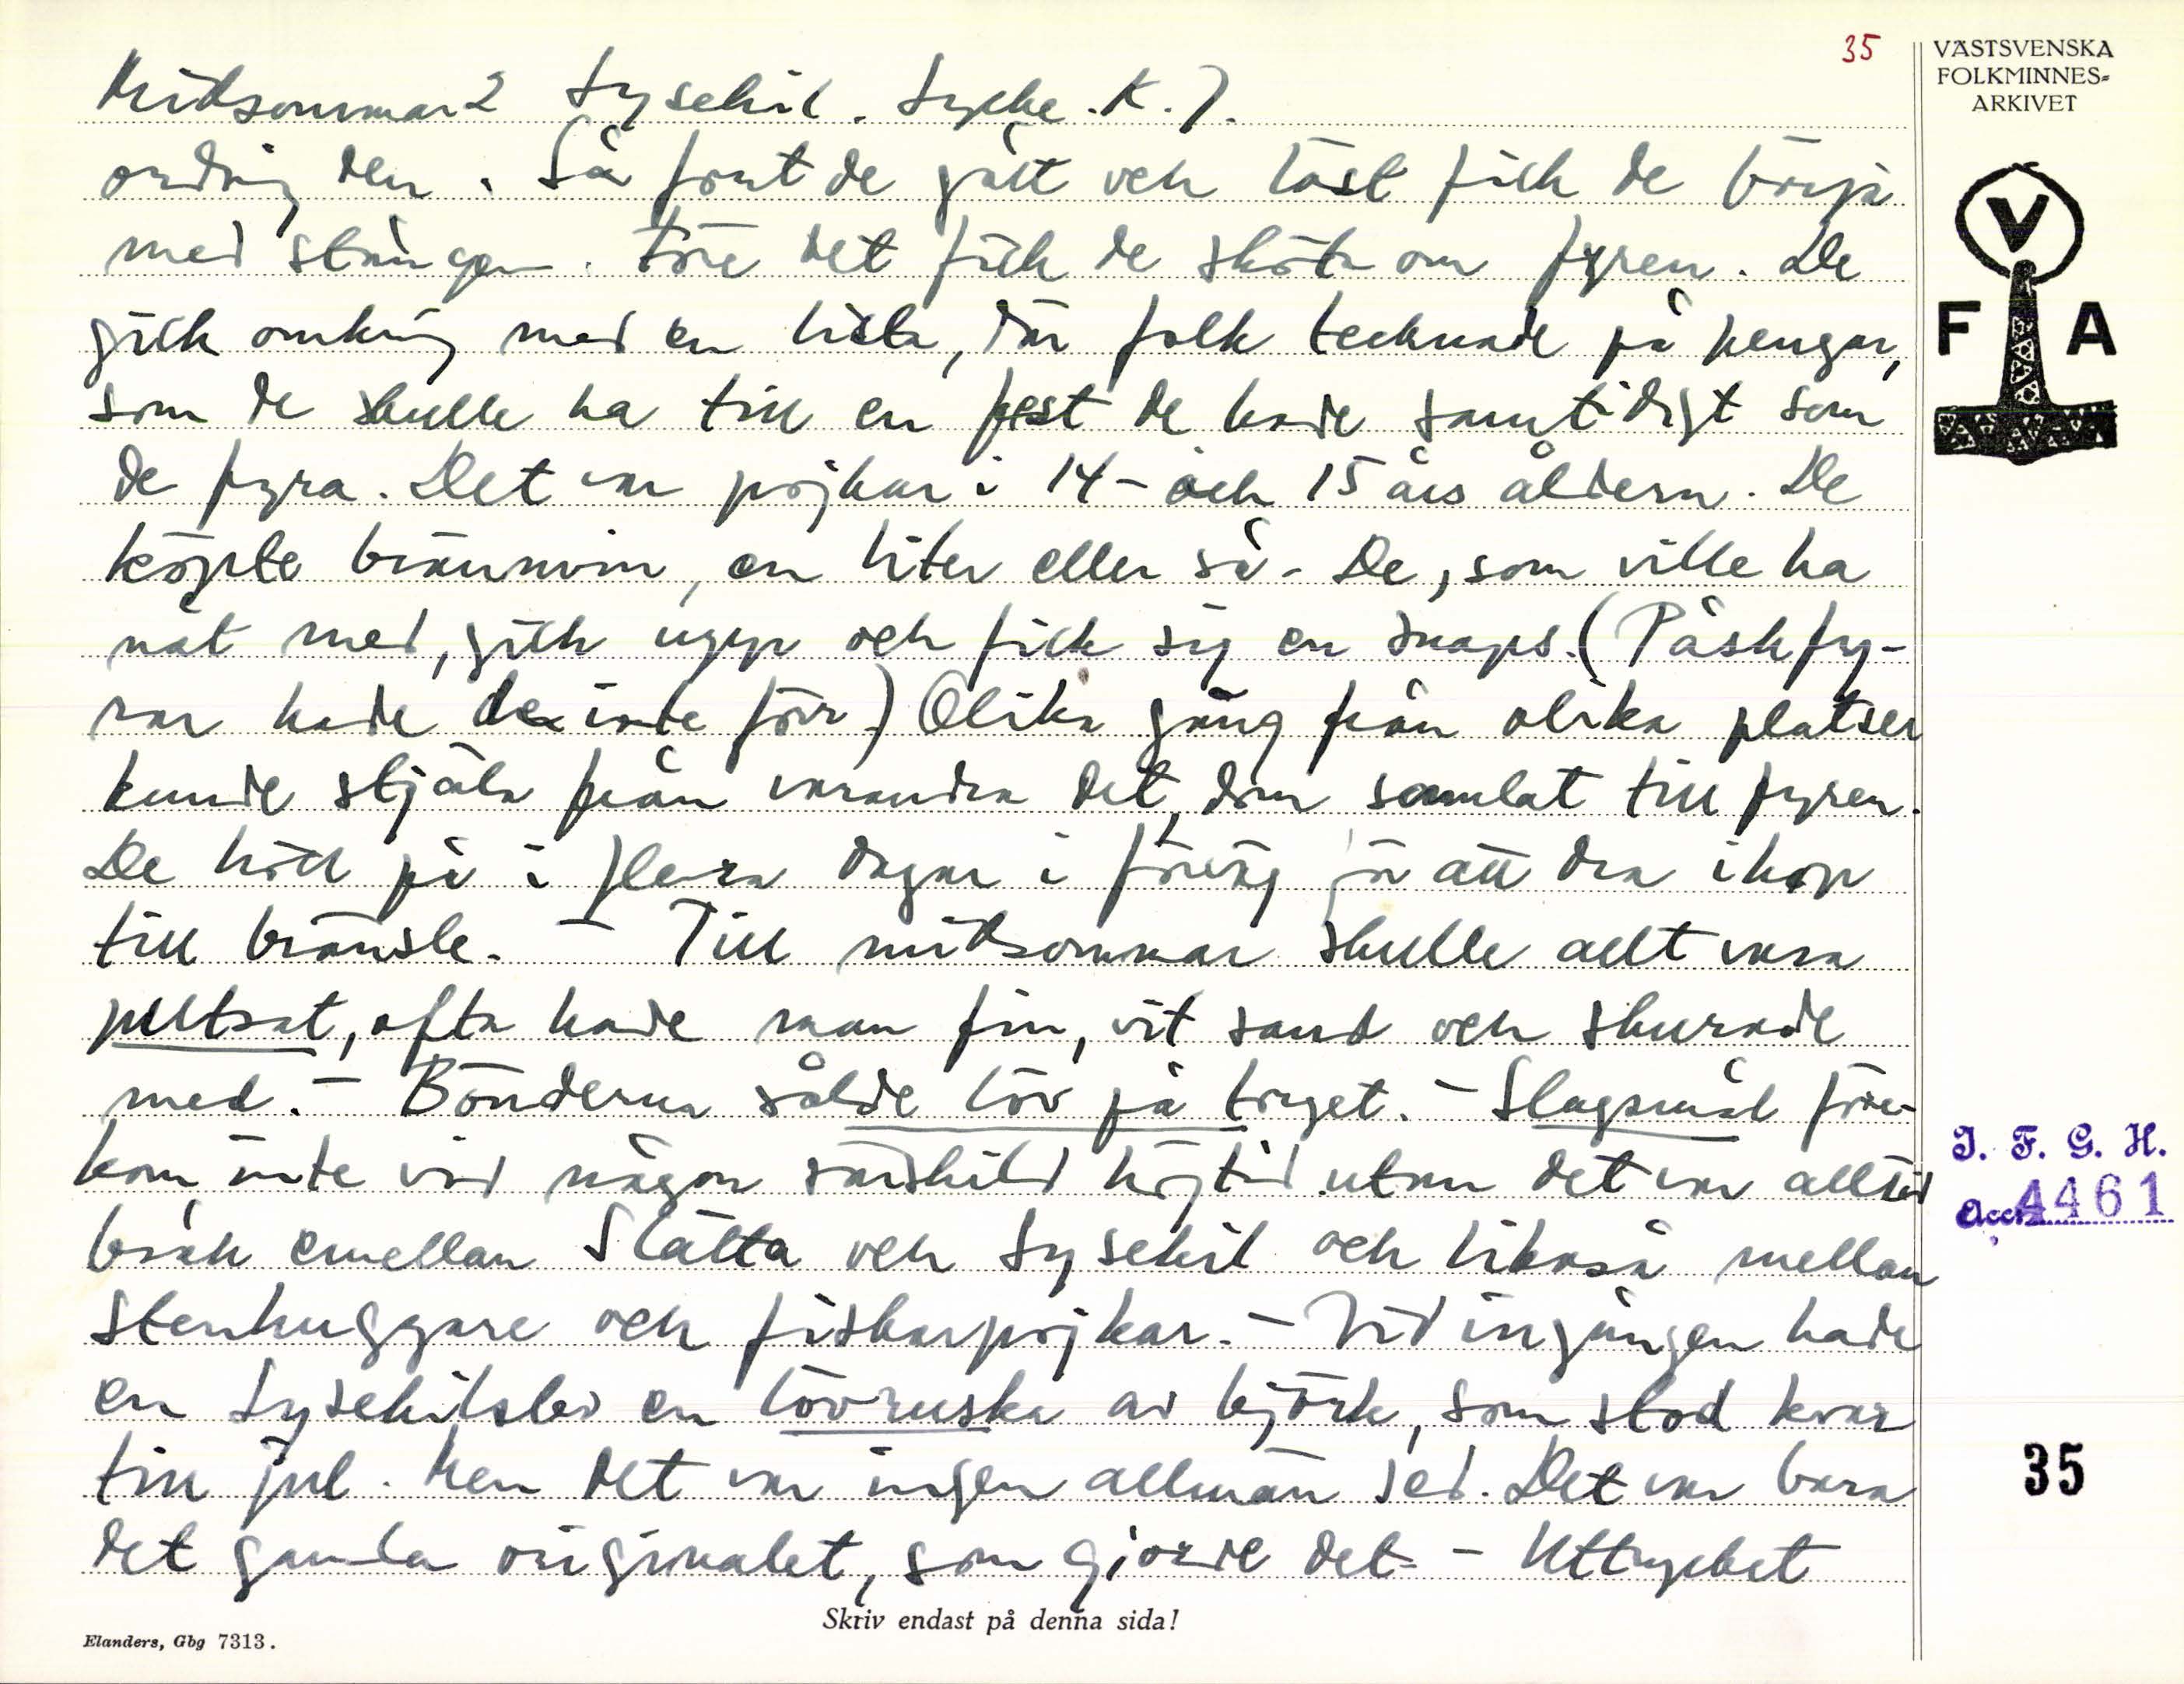 35
VÄSTSVENSKA
FOLKMINNES=
ARKIVET
V
F A
Midsommar 2 Lysekil. Lycke. K. 7.
ordning den. Så fort de gått och läst fick de börja
med stången. Före det fick de sköta om fyren. De
gick omkring med en lista, där folk tecknade på pengar,
som de skulle ha till en fest de hade samtidigt som
de fyra. Det var pojkar i 14- och 15 års åldern. De
köpte brännvin, en liter eller så. De, som ville ha
nåt med, gick upp och fick sig en snaps. (Påskfy-
rar hade de inte förr.) Olika gäng från olika platser
kunde stjäla från varandra det, dom samlat till fyren.
De höll på i flera dagar i förväg på att dra ihop
till bränsle. - Till midsommar skulle allt vara
putsat, ofta hade man fin, vit sand och skurade
med. - Bönderna sålde löv på torget. - Slagsmål före-
kom inte vid någon särskild högtid utan det var alltid
bråk emellan Slätta och Lysekil och likaså mellan
stenhuggare och fiskarpojkar. - Vid ingången hade
en Lysekilsbo en lövruska av björk, som stod kvar
till jul. Men det var ingen allmän sed. Det var bara
det gamla originalet, som gjorde det. - Uttrycket
J. F. G. H.
Acc. 4461
35
Skriv endast på denna sida!
Elanders, Gbg 7313.